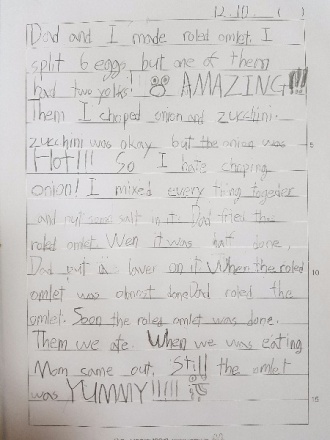 12.10. ( )
Dad and I made roled omlet. I
split 6 eggs but one of them
had two yolks! AMAZING!!!
Them I choped onion and zucchini.
zucchini was okay but the onion was 5
Hot!!! So I hate choping
onion! I mixed every thing together
and put some salt in it. Dad fried the
roled omlet. Wen it was half done,
Dad put a laver on it. When the roled 10
omlet was obnost done Dad roled the
omlet. Soon the roled omlet was done.
Them we ate. When we was eating
Mom came out. Still the omlet
was YUMMY!!!!! 15